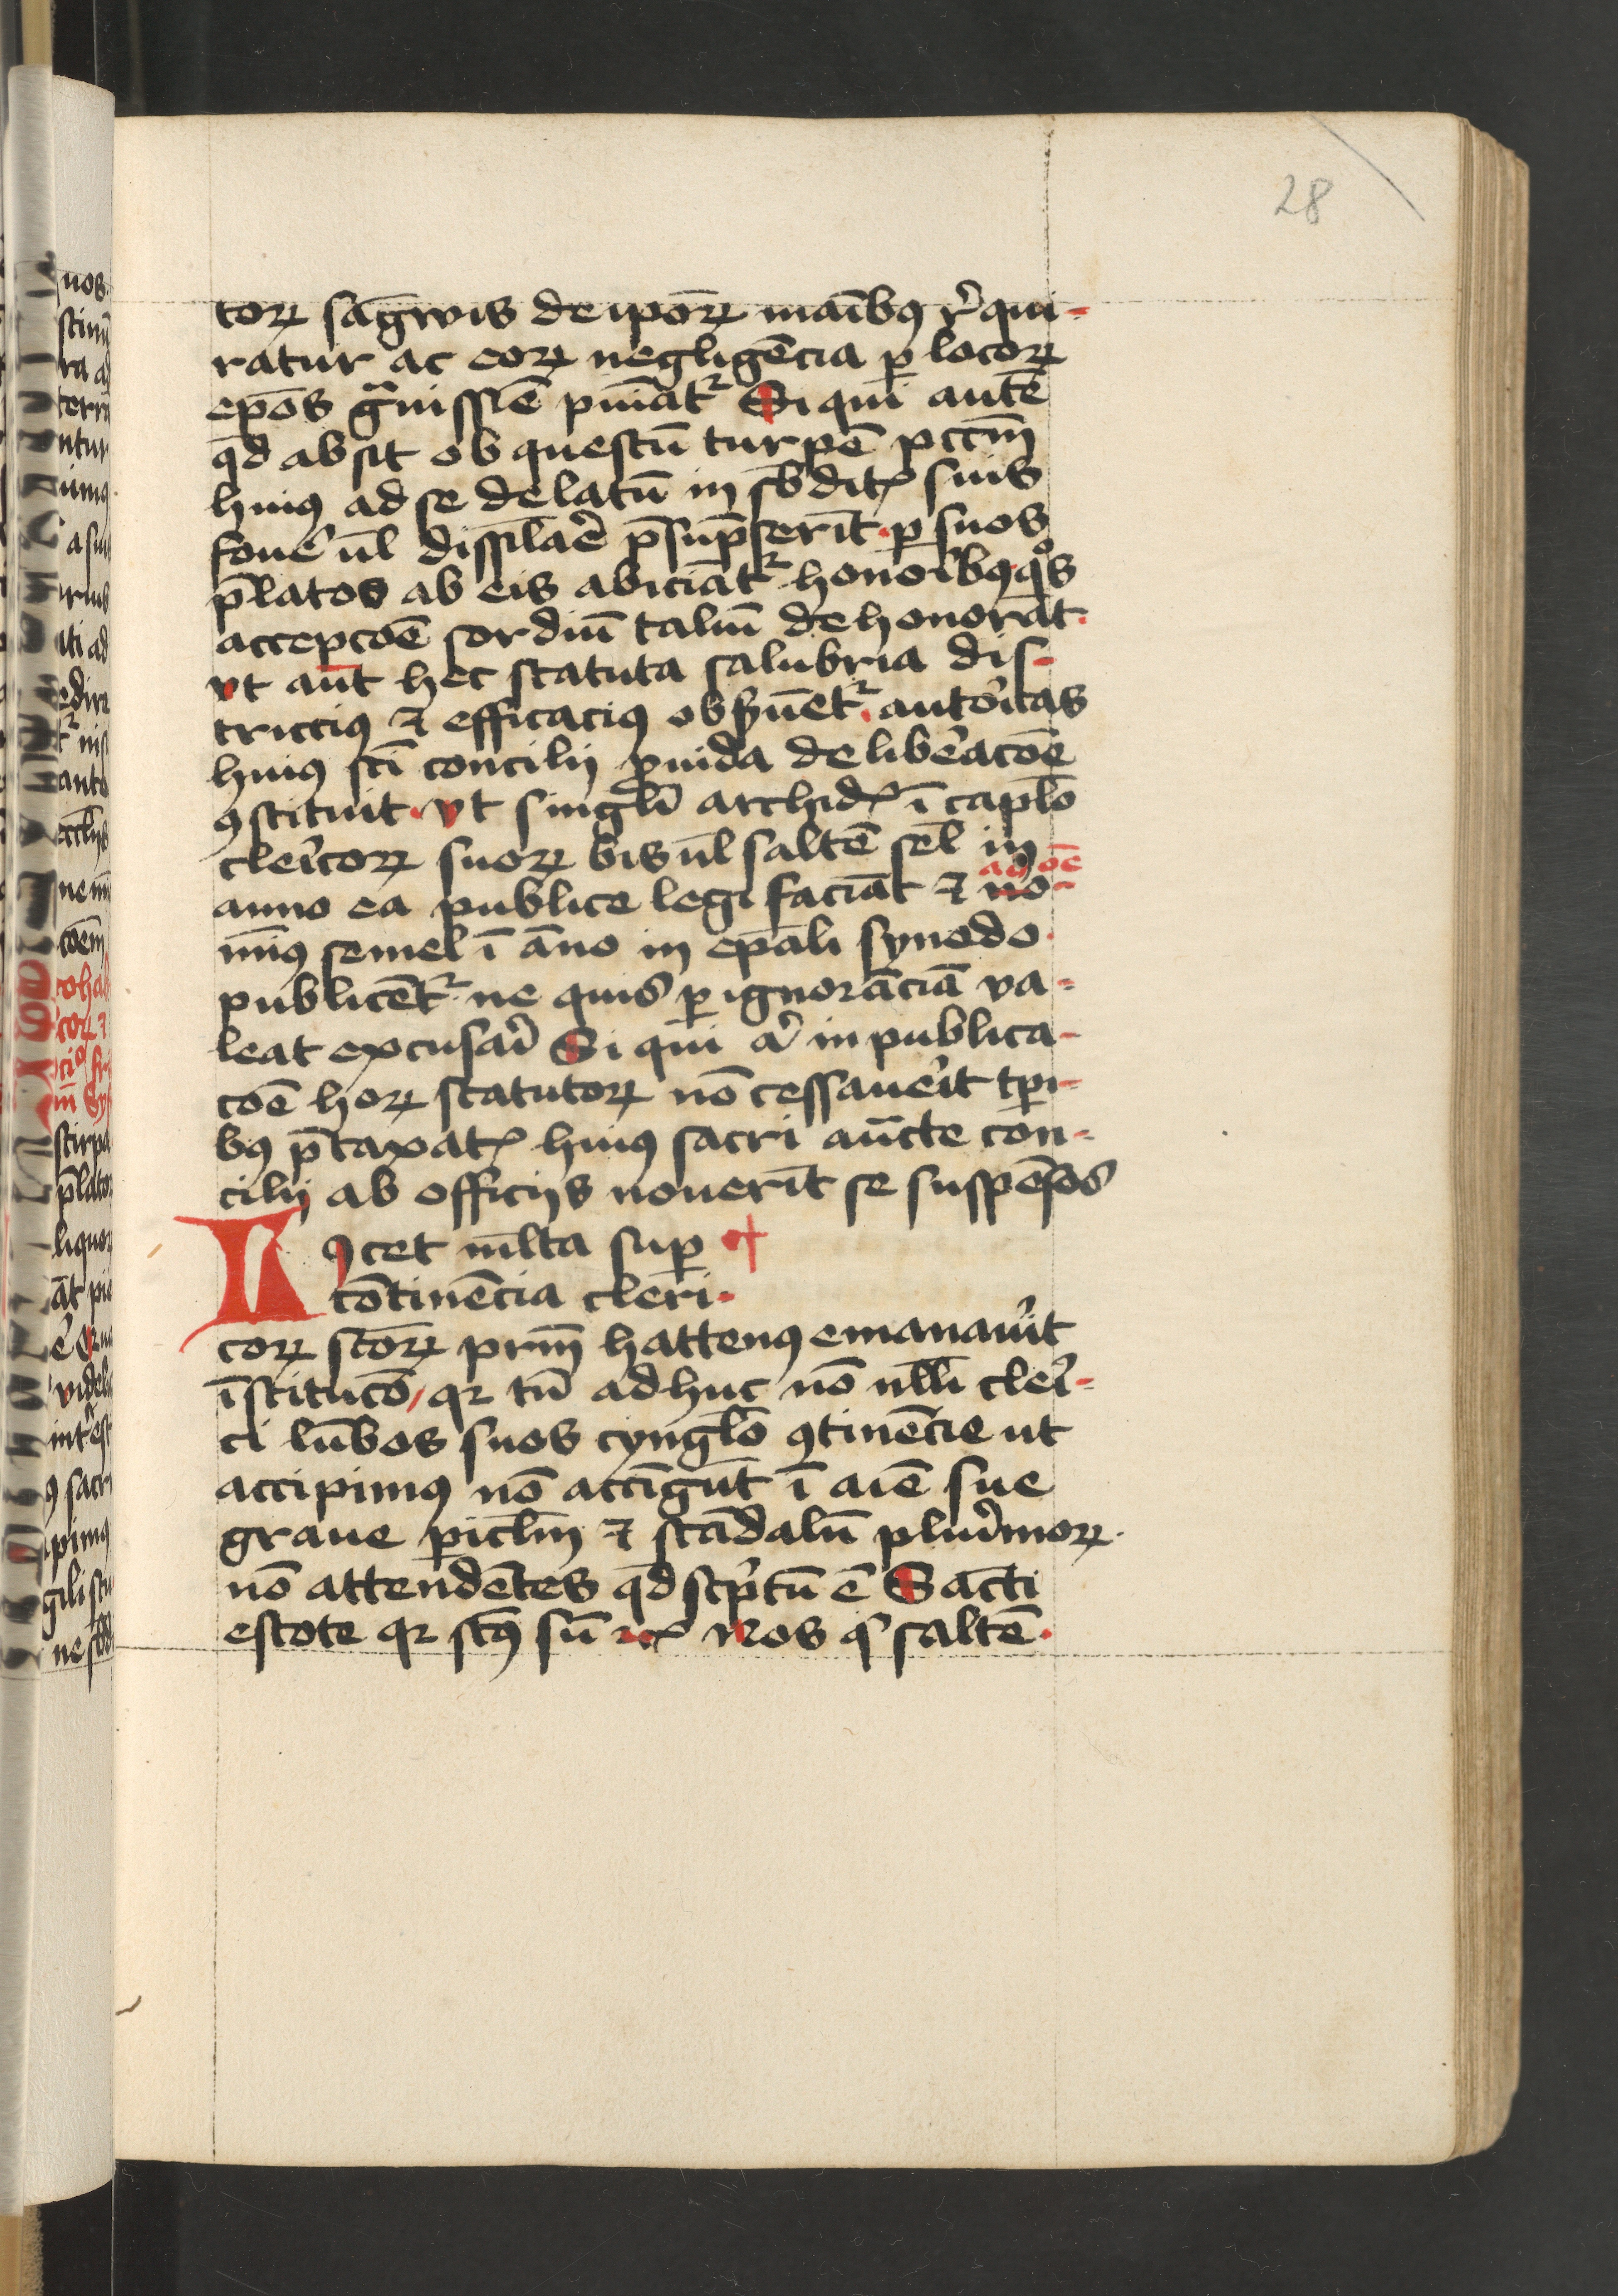 28
torꝝ sāgwis de ip̄oꝝ maībꝰ r̓qui-
ratur ac eorꝝ negligēcia ꝑ locorꝝ
ep̄os gͣuissīe puniāt² Si qui autē
qd̄ absit ob questū turpē pctm̄
huiꝰ ad se delatū in sb̄dit᷒ suis
foue᷒ ul̄ dissil̄ae᷒ p̄sūpserīt · ꝑ suos
p̄latos ab eis abiciāt² honoribꝰ · qͦs
accepcōe sordiū taliū dehonorāt ·
vt aūt hec statuta salubria dis-
trictiꝰ ⁊ efficaciꝰ obs̓uēt² · auto᷒itas
huiꝰ sc̄i concilij ꝓuida delibe᷒acōe
ꝯstituit · vt singl̓i archid᷒ ī capl̄o
cle᷒icorꝝ suorꝝ bis ul̄ saltē sel̄ in
ad oē
anno ea publice legi faciāt ⁊ uo-
miꝰ semel ī āno in ep̄ali synodo ·
publicēt² · ne quis ꝑ ignorāciā va-
leat excusa᷒i Si qui a᷒ in publica-
cōe horꝝ statutorꝝ nō cessaue᷒it tp̄i-
bꝰ p̄taxat᷒ huiꝰ sacri aūcte con-
cilij ab officijs nouerīt se suspēsos
Licet ml̄ta suꝑ +
cōtinēcia cleri-
corꝝ sc̄orꝝ prm̄ hattenꝰ emanaue᷒it
īstitucō / qꝛ tn̄ adhuc nō nll̄i cle᷒i-
ci lūbos suos cyngl̄o ꝯtinēcie ut
accipimꝰ nō accīgūt ī aīe sue
graue ꝑicl̄m ⁊ scādalū plu᷒imorꝝ ·
nō attendētes qd̄ sc̓ptū ē Sācti
estote qꝛ sc̄ꝰ sū ⁊c᷒ Nos g᷒ saltē ·